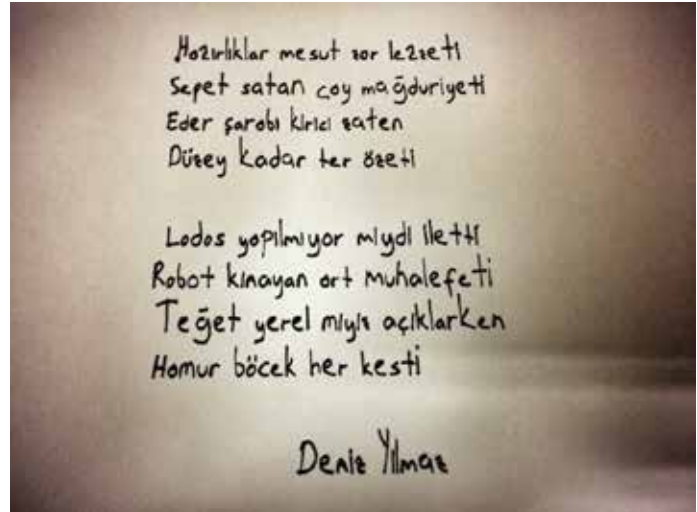 Hazırlıklar mesut zor lezzeti
Sepet satan çoy mağduriyeti
Eder şarabı kirici zaten
Düzey kadar ter özeti
Lodos yapılmıyor mıydı iletti
Robot kınayan art muhalefeti
Teğet yerel miyiz açıklarken
Hamur böcek her kesti
Deniz Yılmaz